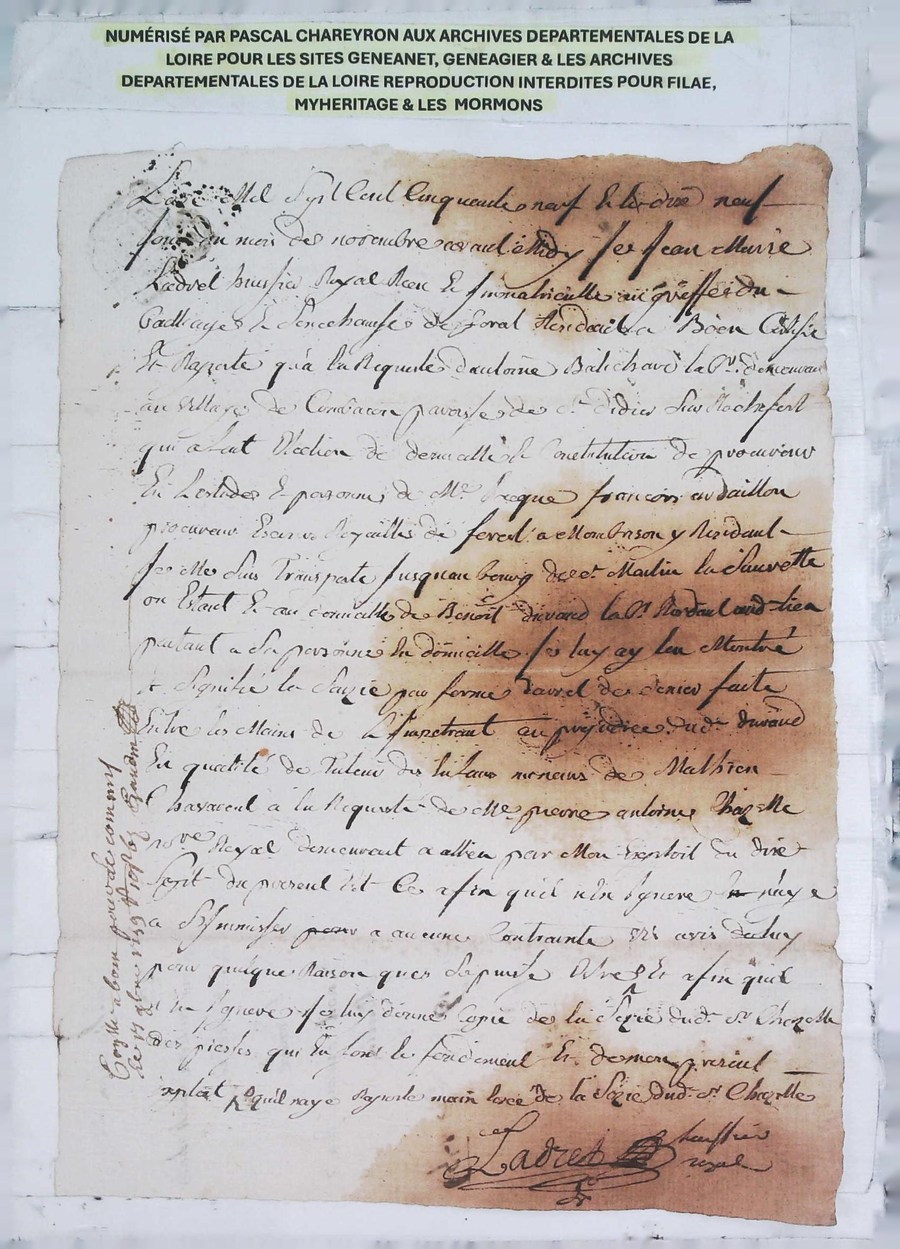 NUMÉRISÉ PAR PASCAL CHAREYRON AUX ARCHIVES DEPARTEMENTALES DE LA
LOIRE POUR LES SITES GENEANET, GENEAGIER & LES ARCHIVES
DEPARTEMENTALES DE LA LOIRE REPRODUCTION INTERDITES POUR FILAE,
MYHERITAGE & LES MORMONS
Lan Mil Sept Cent Cinquante neuf & le dix neuf
jour du mois de novembre avant Midy Je Jean Marie
Ladret huissier Royal Reçu & Immatriculle au greffe du
Bailliage & Senechausse de forest Residant a Boen Certifie
Et Raporte qu'a la Requeste d'antoine demeurant
au village de paroisse de St didier sur Rochefort
qui a fait Election de domicille & Constitution de procureur
En Lestude & personne de Me Jacque francois
procureur Es cours Royalles de forest a Monbrison y Residant
Je Me suis Transporte Jusquau bourg de St Martin la Sauvette
ou Estant & au domicille de Benoit durand Residant aud lieu
parlant a Sa personne En domicille Je luy ay Montré
& Signifié la Sayzie par forme d'arrest de denier faite
Entre les Mains de Limpetrant au prejudice dud durand
En qualité de Tuteur des Enfans mineurs de Mathieu
a la Requeste de Me pierre antoine Chazelle
nore Royal demeurant a allieu par Mon Exploit du dixe
Sept du present Et Ce afin quil nen Ignore
a a aucune Contrainte vis avis de luy
pour quelque Raison que Se puisse Estre Et afin quil
nen Ignore Je luy donne Copie de la Sezie dud Sr Chazelle
des piesses qui En font le fondement Et de mon present
exploit quil Raporte main levée de la Sezie dud Sr Chazelle
Ladret huissier
royal